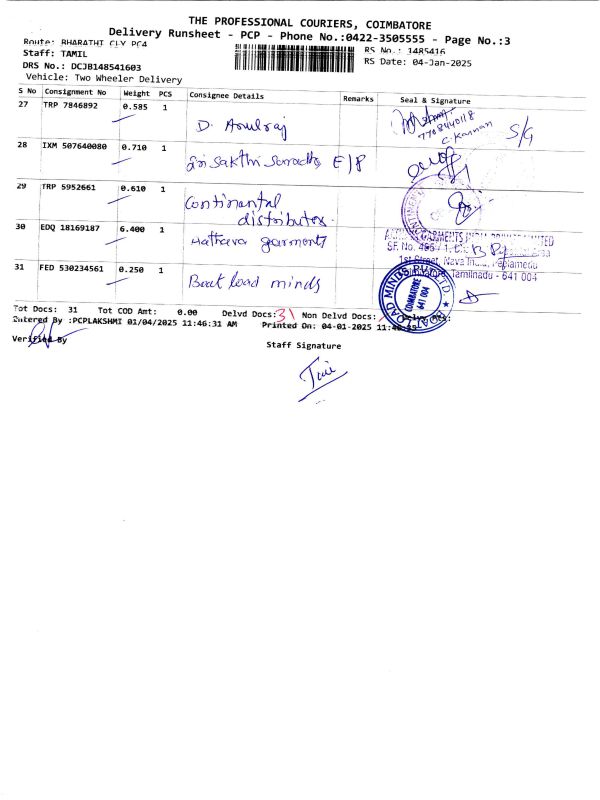 THE PROFESSIONAL COURIERS, COIMBATORE
Delivery Runsheet - PCP - Phone No.:0422-3505555 - Page No.:3
Route: BHARATHI CLY PC4
RS No.: 1485416
Staff: TAMIL
RS Date: 04-Jan-2025
DRS No.: DCJB148541603
Vehicle: Two Wheeler Delivery
S No Consignment No Weight PCS Consignee Details Remarks Seal & Signature
27 TRP 7846892 0.585 1 D. Arulraj
C. Kannan S/G
28 IXM 507640080 0.710 1 Sri Sakthi E/P
29 TRP 5952661 0.610 1 Continental distributors
30 EDQ 18169187 6.400 1 garments
641 004
31 FED 530234561 0.250 1 Boat load minds
BOAT LOAD MINDS PVT LTD
COIMBATORE
641 004
Tot Docs: 31 Tot COD Amt: 0.00 Delvd Docs: 31 Non Delvd Docs:
Entered By :PCPLAKSHMI 01/04/2025 11:46:31 AM Printed On: 04-01-2025
Verified By
Staff Signature